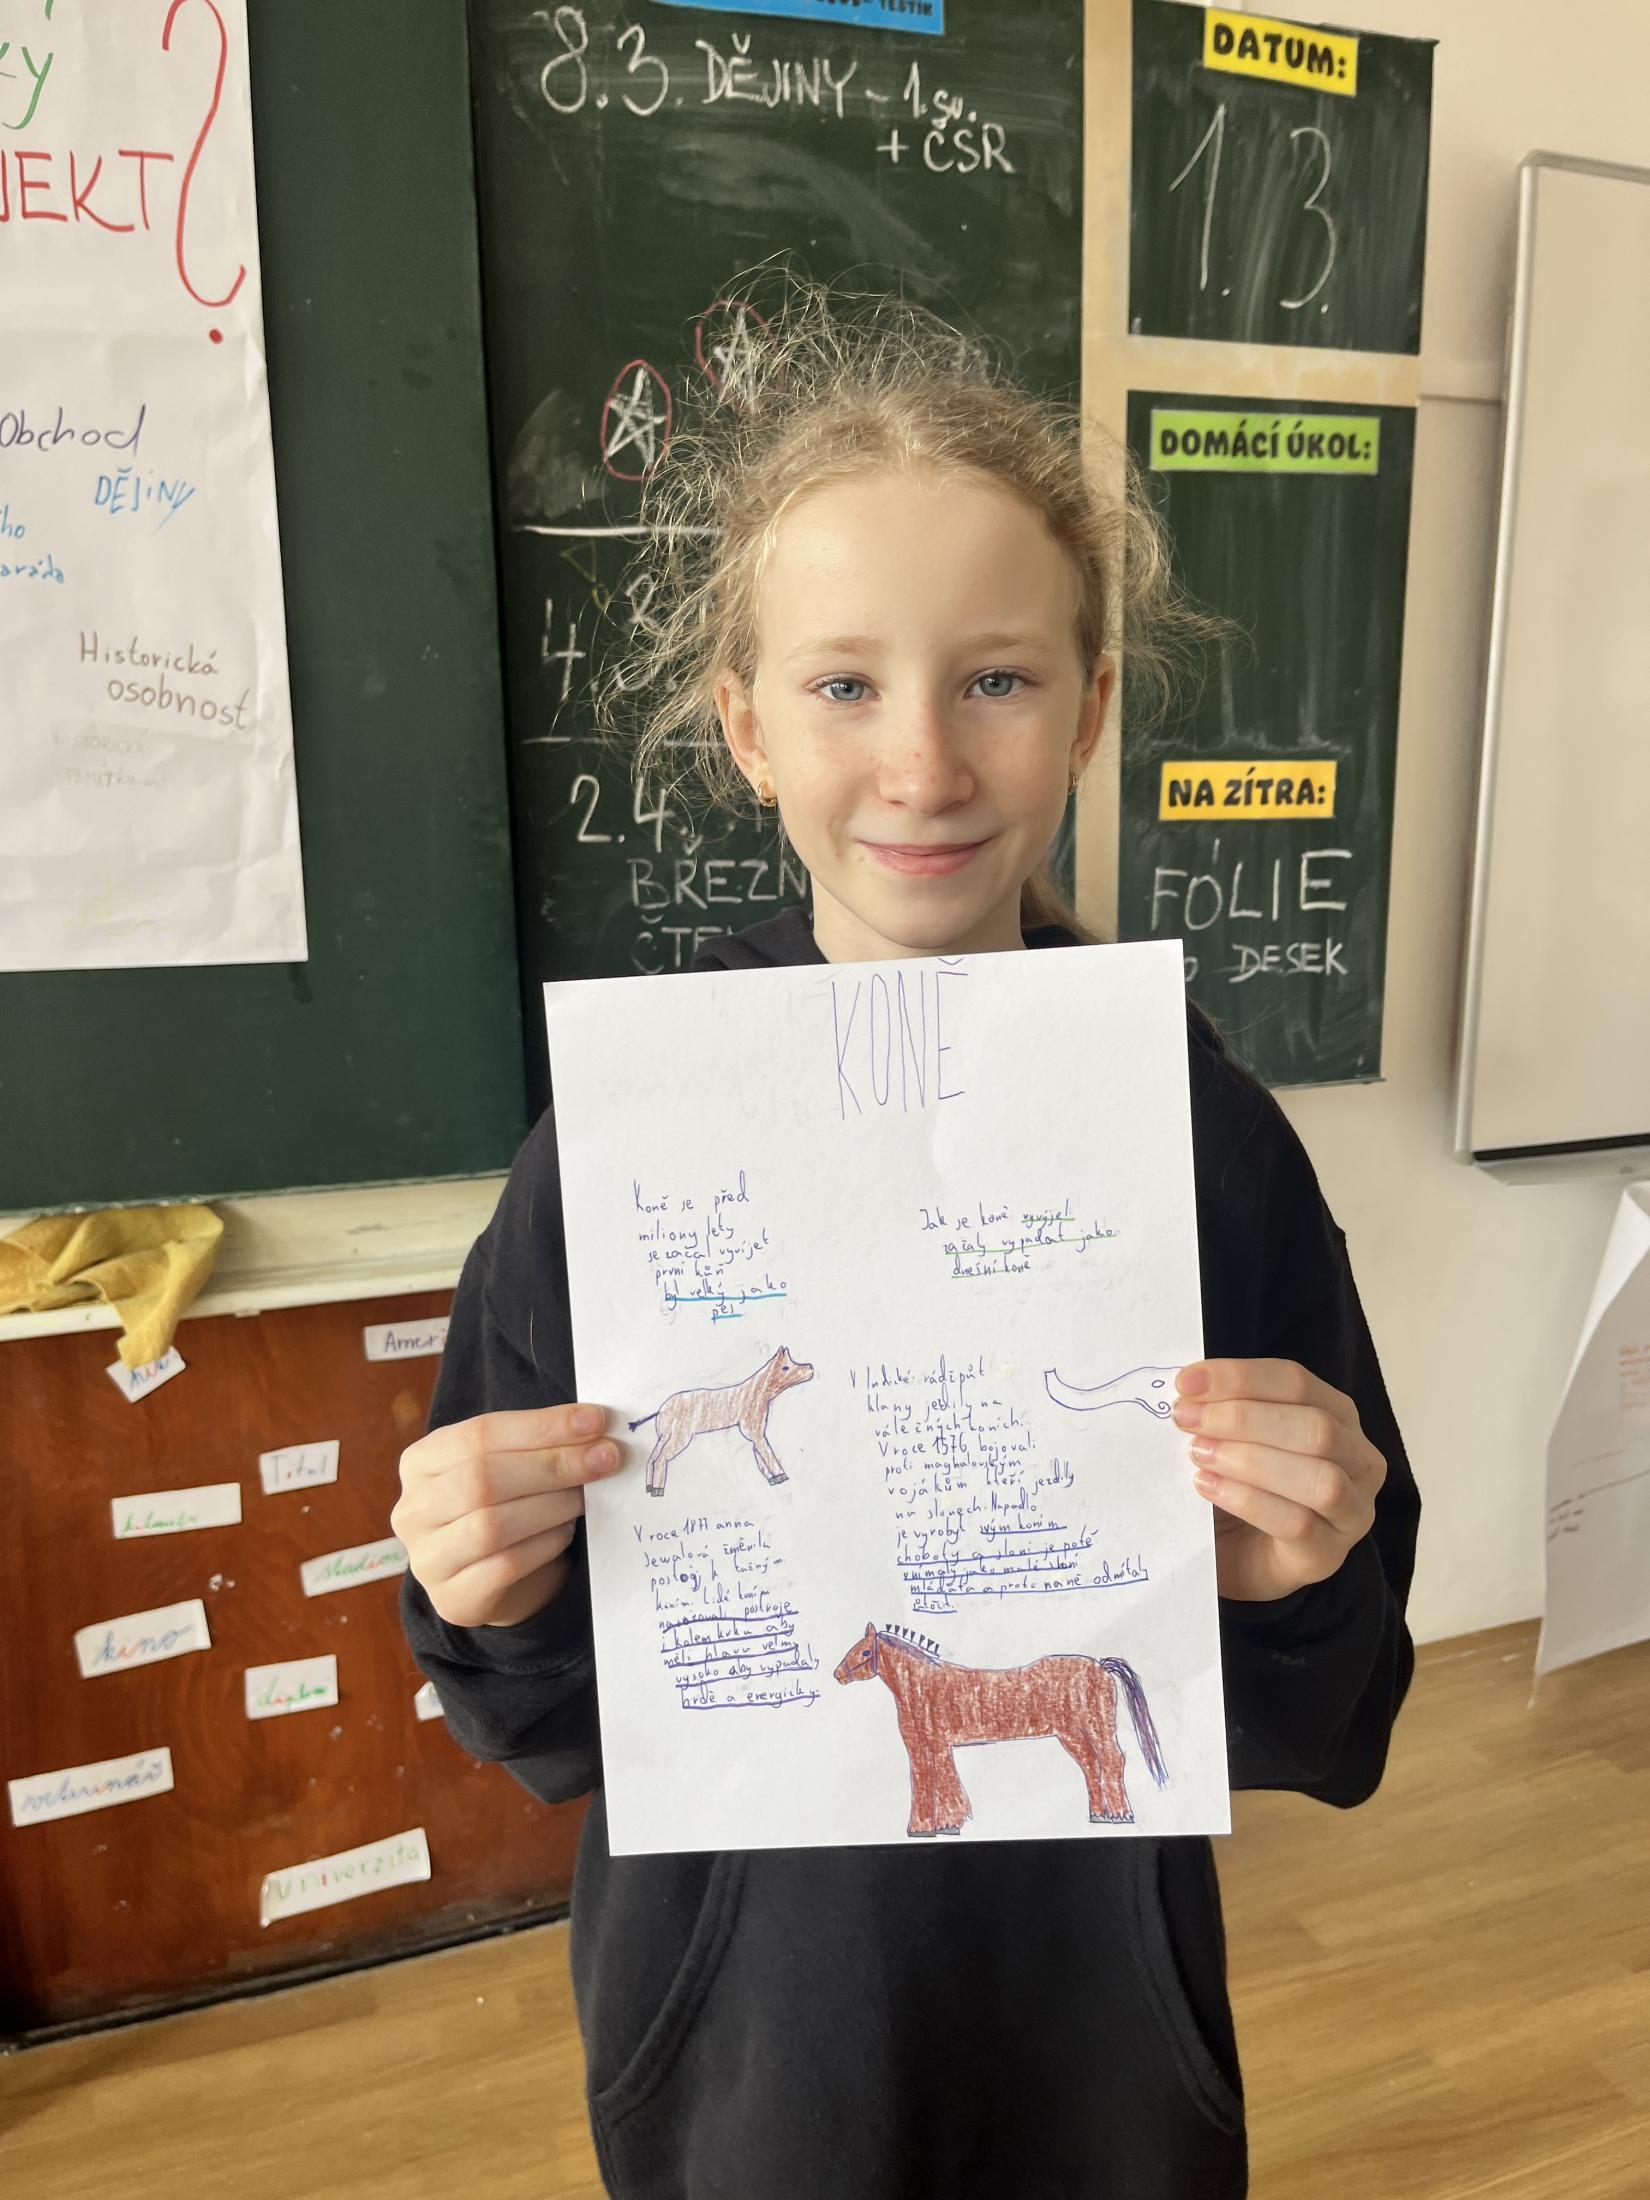 KÝ
JEKT?
Obchod
DĚJINY
ho
Historická
osobnost
8.3. DĚJINY - 1.sv.
+ ČSR
4.3.
2.4.
BŘEZN
ČTE
DATUM:
1.3.
DOMÁCÍ ÚKOL:
NA ZÍTRA:
FÓLIE
DESEK
KONĚ
Koně se před
miliony lety
se začal vyvíjet
první kůň
byl velký jako
pes
Jak se koně vyvýjeli
začaly vypadat jako
dnešní koně
V Indické rádžpůt
klany jezdily na
válečných koních.
V roce 1576 bojovali
proti maghalovským
vojákům kteří jezdily
na slonech. Napadlo
je vyrobyt svým koním
choboty a sloni je poté
vnímaly jako malé sloní
mláďata a proto na ně odmítaly
útočit.
V roce 1877 anna
Sewalová změnila
postoj k tažným
koním. Lidé koním
nasazovali postroje
i kolem krku aby
měli hlavu velmi
vysoko aby vypadaly
hrdě a energicky.
Ameri
kino
veterinář
Univerzita